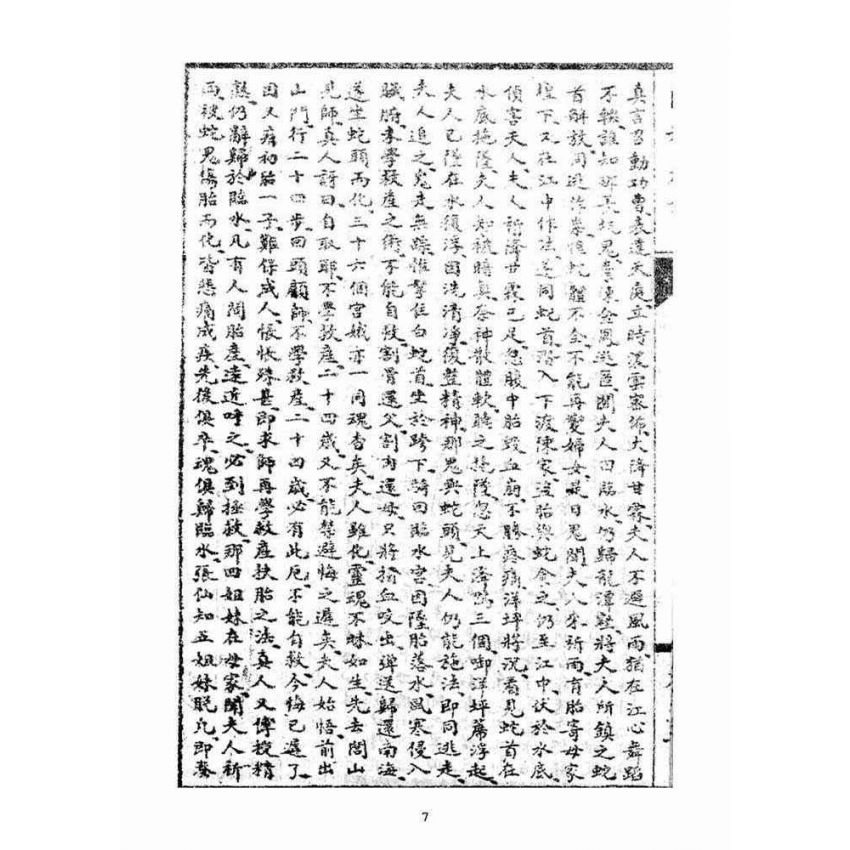 真言召動功曹表達天庭立時濃雲密佈大降甘霖夫人不避風雨猶在江心舞蹈
不輟誰知那長坑鬼學陳金鳳逃匿聞夫人回臨水仍歸龍潭壑將夫人所鎮之蛇
首解放同逃作祟惟蛇體不全不能再變婦女是日鬼聞夫人祭祈雨有胎寄母家
壇下又在江中作法遂同蛇首潛入下渡陳家盜胎與蛇食之仍至江中伏於水底
偵害夫人夫人祈降甘霖已足忽腹中胎毀血崩不勝疼痛洋坪將沉看見蛇首在
水底拖墜夫人知被暗算奈神散體軟聽之拖墜忽天上降鴨三個啣洋坪蓆浮起
夫人已墜在水復浮因洗清淨復整精神那鬼與蛇頭見夫人仍能施法即同逃走
夫人追之鬼走無蹤惟擊住白蛇首坐於跨下騎回臨水宮因墜胎落水風寒侵入
臟腑未學救產之術不能自救割骨還父割肉還母只將指血咬出彈送歸還南海
遂坐蛇頭而化三十六個宮娥亦一同魂杳矣夫人雖化靈魂不昧如生先去閭山
見師真人訝曰自取耶不學救產二十四歲又不能禁避悔之遲矣夫人始悟前出
山門行二十四步回頭顧師不學救產二十四歲必有此厄不能自救今悔已遲了
因又痛初胎一子難保成人悵悵殊甚即求師再學救產扶胎之法真人又傳授精
熟仍辭歸於臨水凡有人間胎產遠近呼之必到拯救那四姐妹在母家聞夫人祈
雨被蛇鬼傷胎而化皆悲痛成疾先後俱卒魂俱歸臨水張仙知五姐妹脫凡即奏
7